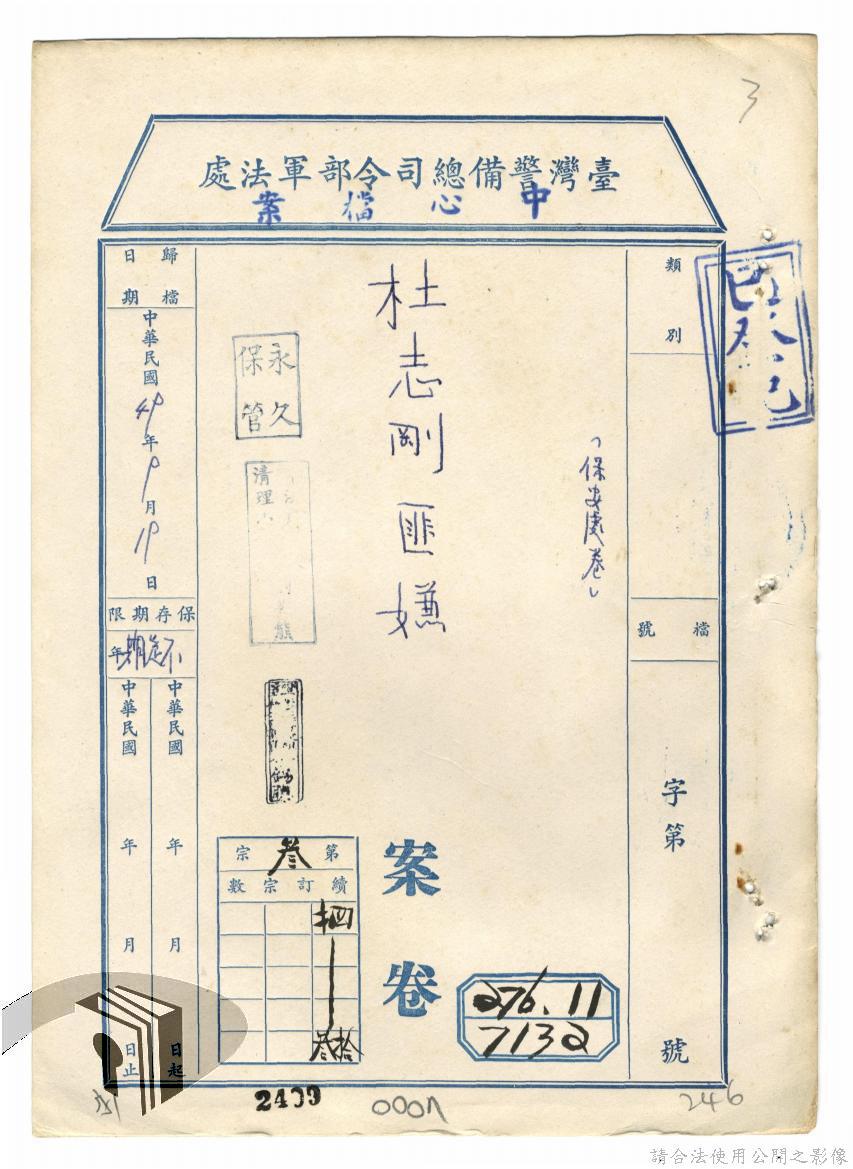 3
臺灣警備總司令部軍法處
中心檔案
類別
檔號
字第
號
「保安處卷」
杜志剛匪嫌
案卷
276.11
7132
永久
保管
清理
第叁宗
續訂宗數
歸檔
日期
中華民國49年9月19日
保存期限
不定期年
中華民國 年 月 日起
中華民國 年 月 日止
246
請合法使用公開之影像